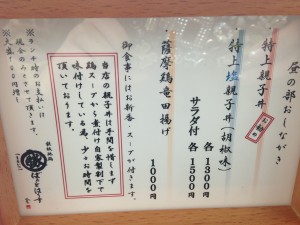 昼の部おしながき
特上親子丼
お勧め
特上塩親子丼(胡椒味)
各1300円
サラダ付 各1500円
薩摩鶏竜田揚げ
1000円
御食事にはお新香・スープが付きます。
当店の親子丼は手間を惜しまず
鶏スープから煮付け自家製割下で
味付けしている為、少々お時間を
頂いております。
※ランチ時のお支払いは
現金のみとさせて頂きます。
※大盛100円増し